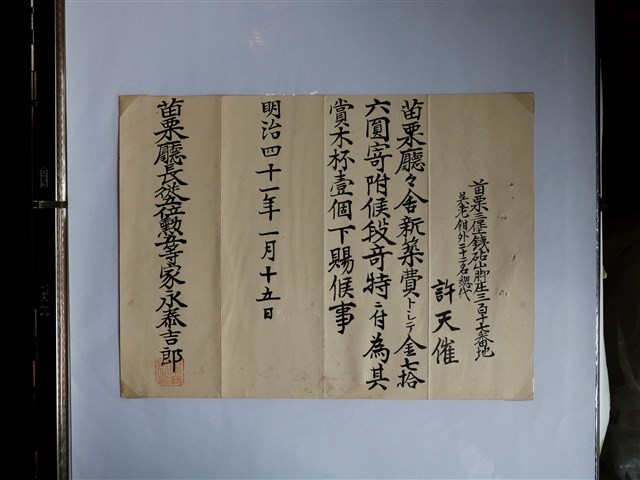 苗栗三堡錢砧山脚庄三百十七番地
吳老鉗外二十三名總代
許天催
苗栗廳々舍新築費トシテ金七拾
六圓寄附候段奇特ニ付為其
賞木杯壹個下賜候事
明治四十一年一月十五日
苗栗廳長從六位勲五等家永泰吉郎